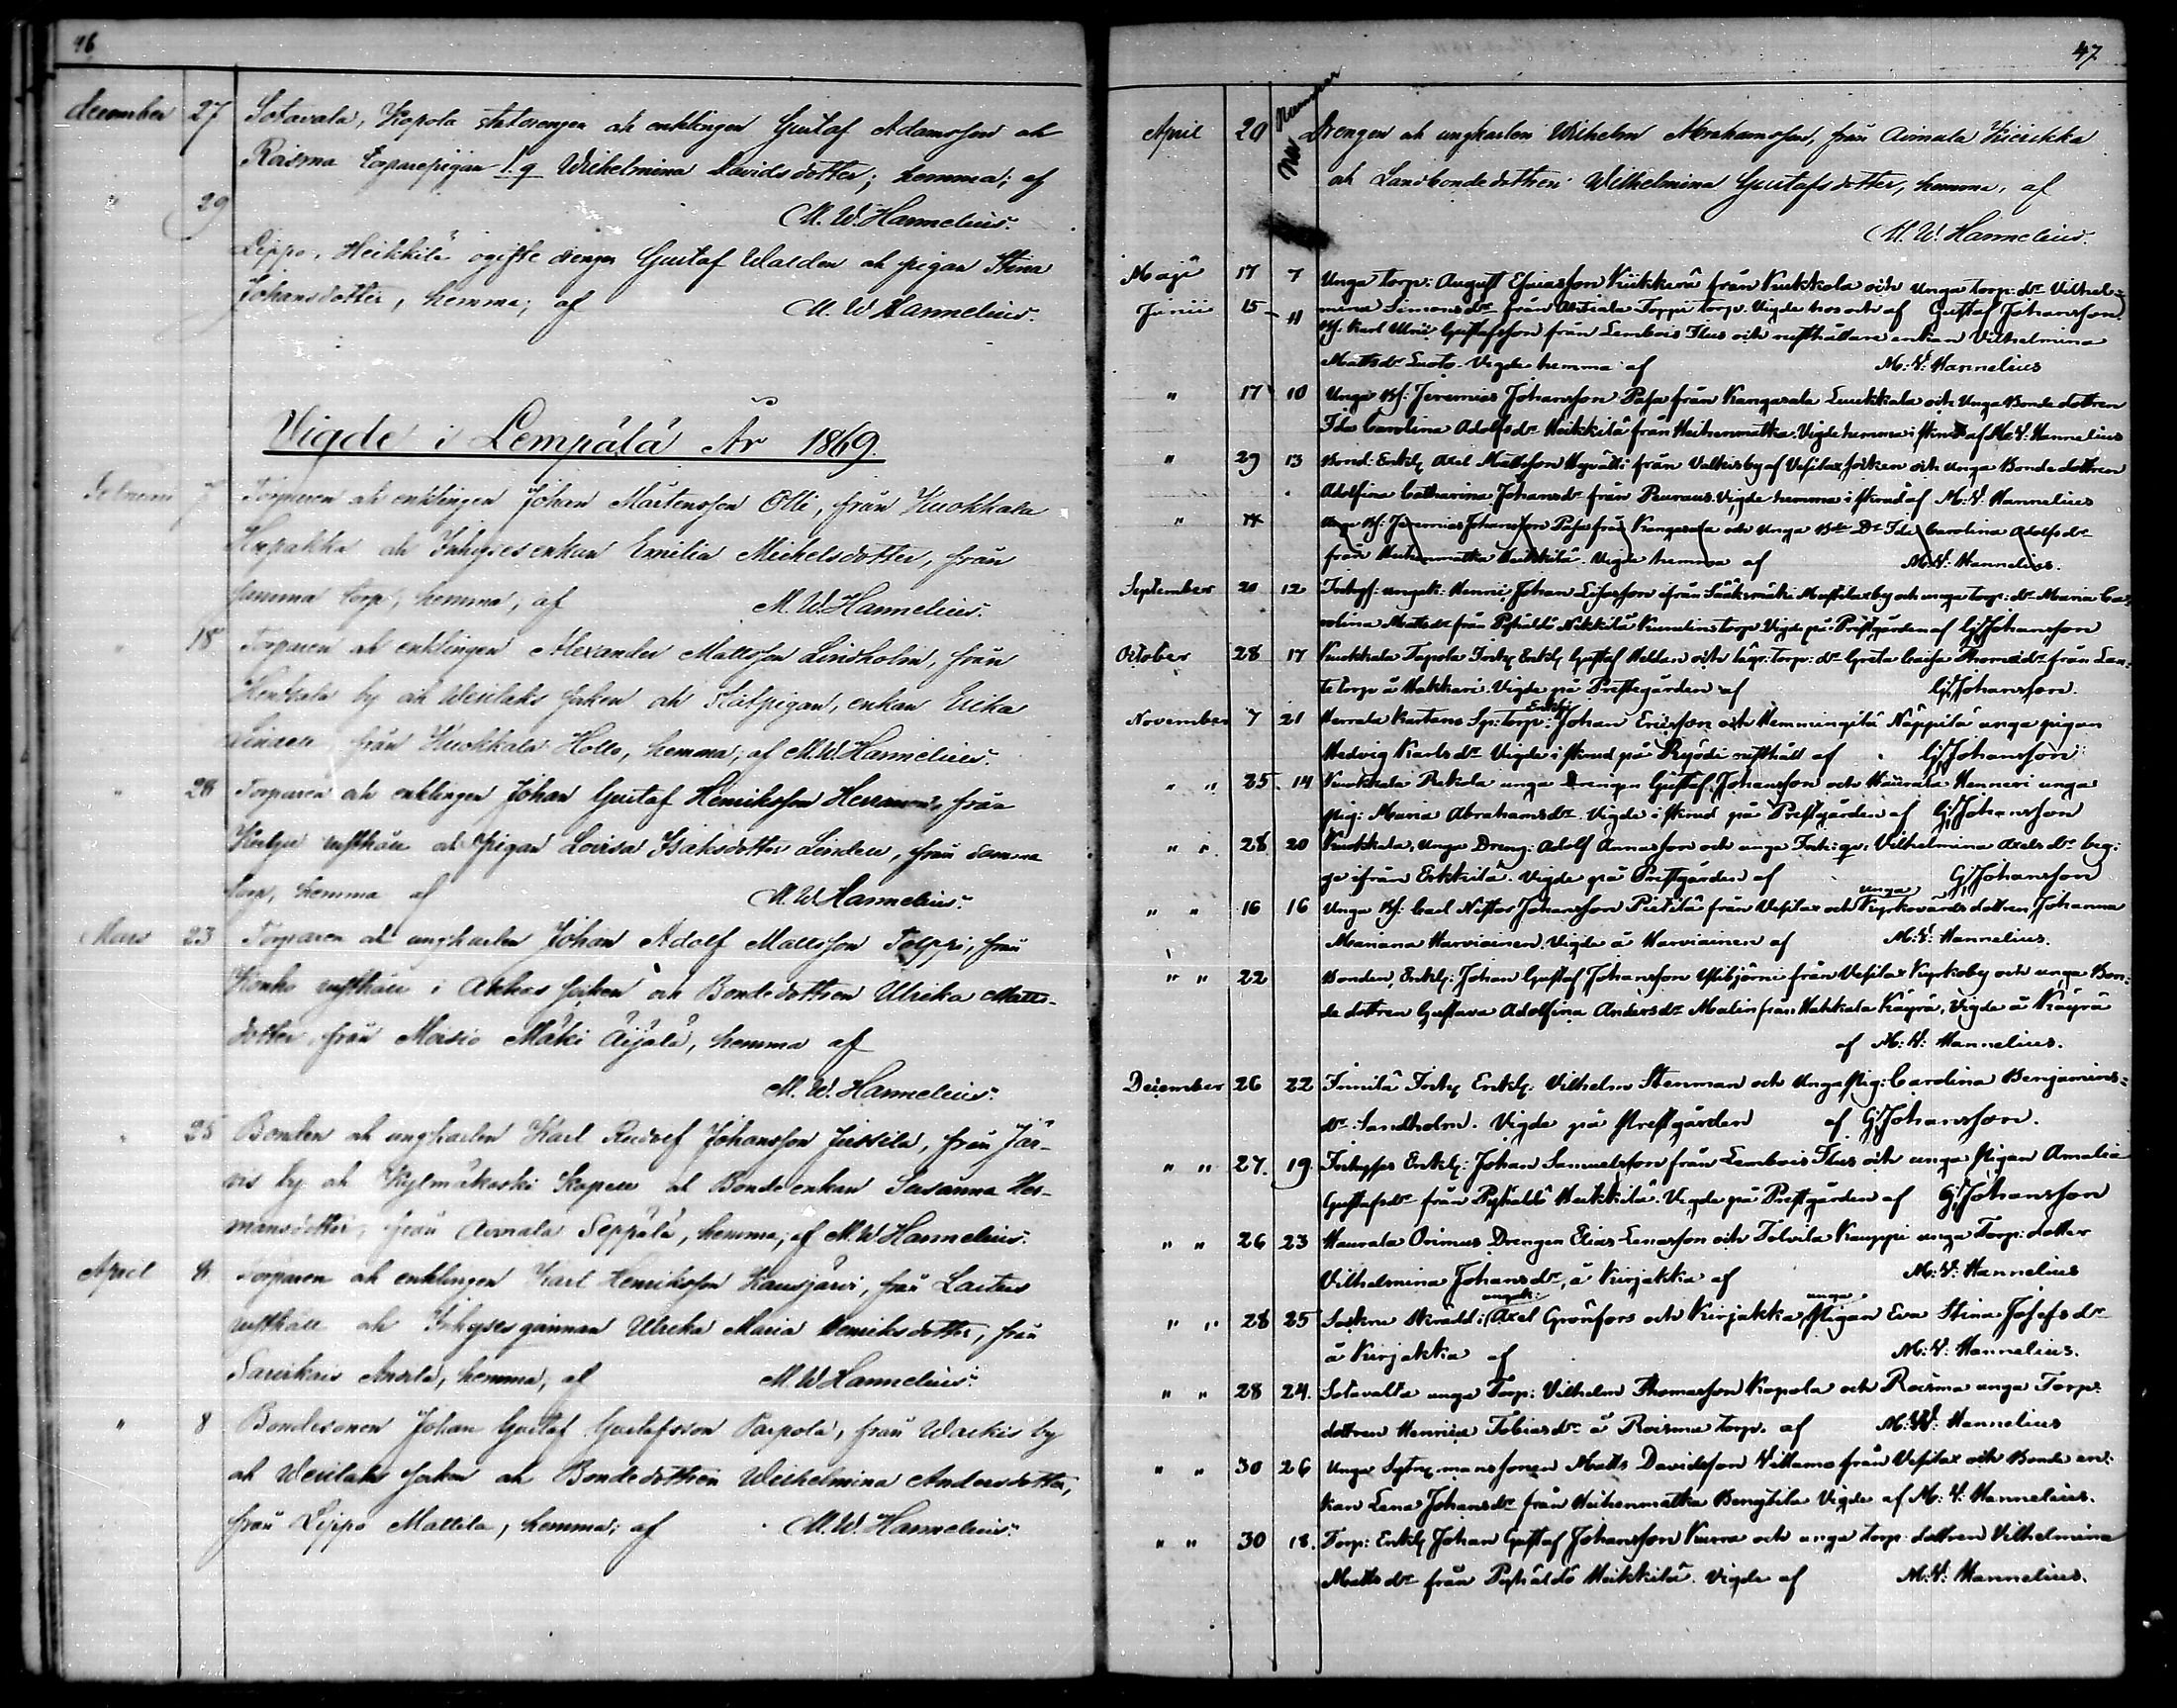 46
december 27 Sotavala, Kopola statdrengen och enklingen Gustaf Adamsson och
Roisma torparepigan l. q Wilhelmina Davidsdotter; hemma; af
" 29 M. W. Hannelius.
Lippo, Heikkilä ogifte drengen Gustaf Walden och pigan Stina
Johansdotter, hemma; af M. W. Hannelius.
Vigde i Lempälä År 1869.
7 Torparen och enklingen Johan Mårtensson Olli, från Kuokkala
och Inhyses enkan Emilia Michelsdotter, från
samma torp, hemma, af M. W. Hannelius.
" 18 Torparen och enklingen Alexander Mattsson Lindholm, från
by och Wesilaks socken och enkan Erika
från Kuokkala Hollo, hemma, af M. W. Hannelius.
" 28 Torparen och enklingen Johan Gustaf Henriksson från
rusthåll och pigan Lovisa Isaksdotter Linden, från samma
torp, hemma af M. W. Hannelius.
Mars 23 Torparen och ungkarlen Johan Adolf Mattsson Tolppi, från
Konho rusthåll i Ackas socken och Bondedottren Ulrika Matts-
dotter från Moisio Mäki Äijälä, hemma af
M. W. Hannelius.
" 25 Bonden och ungkarlen Karl Rudolf Johansson Jussila, från Jär-
vis by och Kylmäkoski Kapell och Bondeenkan Susanna Her-
mansdotter, från Aimala Seppälä, hemma, af M. W. Hannelius.
April 8. Torparen och enklingen Karl Henriksson Kausjärvi, från
rusthåll och Inhyses qvinnan Ulrika Maria Henriksdotter, från
Saurikais Anola, hemma, af M. W. Hannelius.
" 8 Bondesonen Johan Gustaf Gustafsson Parpola, från Wackis by
och Wesilaks socken och Bondedottren Wilhelmina Andersdotter,
från Lippo Mattila, hemma; af M. W. Hannelius.
47.
No Nummer
April 20 Drengen och ungkarlen Wilhelm Abrahamsson, från Aimala Kierikka
och Landbondedottren Wilhelmina Gustafsdotter, hemma, af
M. W. Hannelius.
Maji 17 7 Unga torp: August Esaiasson Kiikkerä från Kuokkola och Unga torp: dr Vilhel-
Junii 15 11 mina Simonsdr från Toppi torp. Vigde hos och af Gustaf Johansson.
Bs: Karl Ulric Gustafsson från Lembois Ilus och rusthållare enkan Vilhelmina
Mattsdr Luoto. Vigde hemma af M: V: Hannelius
" 17 10 Unga Bs: Jeremias Johansson Pasa från Kangasala Luukkala och Unga Bonde dottren
Ida Carolina Adolfsdr Heikkilä från Keihenmatka. Vigde hemma i skrud af M: V: Hannelius
" 29 13 Bond: Enkl: Axel Mattsson från Valkisby af Vesilax socken och Unga Bonde dottren
Adolfina Catharina Johansdr från Peuraus. Vigde hemma i skrud af M: V: Hannelius
" 17 Unga Bs: Jeremias Johansson Pasa från Kangasala och Unga Bde Dr Ida Carolina Adolfsdr
från Keihenmatka Heikkilä. Vigde hemma af M: V: Hannelius.
September 20 12 Inhys: ungk: Henric Johan Esaiasson ifrån Sääksmäki by och unga torp: dr Maria Ca-
rolina Mattsdr från Pyhäldö torp Vigde på Prestgården af G: Johansson
October 28 17 Kuokkala Tapola Inh: Enkl: Gustaf Helden och läg: torp: dr Greta Caisa Thomædr från Lau-
torp å Hakkari. Vigde på Prestegården af G: Johansson.
November 7 21 Herrala Kartano Sp: torp: Enkl: Johan Ericsson och Hemmingilä Näppilä unga pigan
Hedvig Karlsdr Vigde i skrud på Ryödi rusthåll af G: Johansson
" " 25 14 Kuokkala unga Drengen Gustaf Johansson och Haurala Henneri unga
pig: Maria Abrahamsdr. Vigde i skrud på Prestgården af G: Johansson
" " 28 20 Kuokkala, unga Dreng: Adolf Annasson och unga Inh: qv: Vilhelmina Axels dr beg-
ge ifrån Erkkilä. Vigde på Prestgården af G: Johansson
" " 16 16 Unga Bs: Carl Nestor Johansson Pietilä från Vesilax och unga Kyrkovärds dottren Johanna
Mariana Harviainen. Vigde å Harviainen af M: V: Hannelius.
" " 22 Bonden, Enkl: Johan Gustaf Johansson från Vesilax Kyrkoby och unga Bon-
de dottren Gustava Adolfina Andersdr Malin från Hakkala Käyrä, Vigde å Käyrä
af M: V: Hannelius.
December 26 22 Innilä Inh: Enkl: Vilhelm Stenman och Unga Pig: Carolina Benjamins-
dr Sandholm. Vigde på Prestgården af G: Johansson.
" " 27. 19. Inhyses Enkl: Johan Samuelsson från Lembois Ilus och unga Pigan Amalia
Gustafsdr från Pyhäldö Heikkilä. Vigde på Prestgården af G: Johansson
" " 26 23 Haurala Orimus Drengen Elias Lenasson och Tolvila Kauppi unga Torp: dotter
Vilhelmina Johansdr, å Kirjakka af M: V: Hannelius
" " 28 25 Sockne Skrädd: ungk: Axel Grönfors och Kirjakka unga Pigan Eva Stina Josefsdr
å Kirjakka af M: V: Hannelius.
" " 28 24. Sotavalta unga Torp: Vilhelm Thomasson Kopola och Roisma unga Torp:
dottren Henrica Tobiasdr å Roisma torp. af M: W: Hannelius
" " 30 26 Unga mans sonen Matts Davidsson Villamo från Vesilax och Bonde en-
kan Lena Johansdr från Keihenmatka Bengtila Vigde af M: V: Hannelius.
" " 30 18. Torp: Enkl: Johan Gustaf Johansson Kurra och unga torp. dottren Vilhelmina
Matts dr från Pyhäldö Heikkilä. Vigde af M: V: Hannelius.